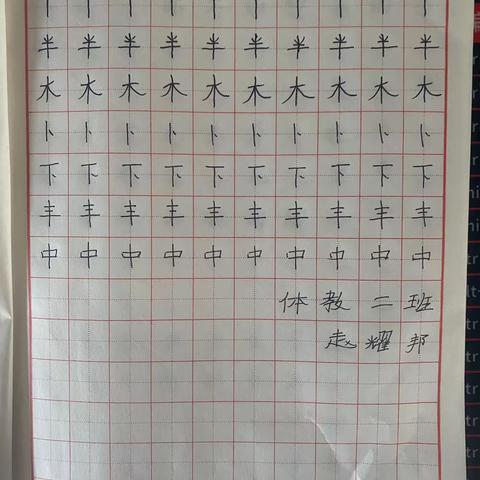 半 半 半 半 半 半 半 半 半 半
木 木 木 木 木 木 木 木 木 木
卜 卜 卜 卜 卜 卜 卜 卜 卜 卜
下 下 下 下 下 下 下 下 下 下
丰 丰 丰 丰 丰 丰 丰 丰 丰 丰
中 中 中 中 中 中 中 中 中 中
体 教 二 班
赵 耀 邦